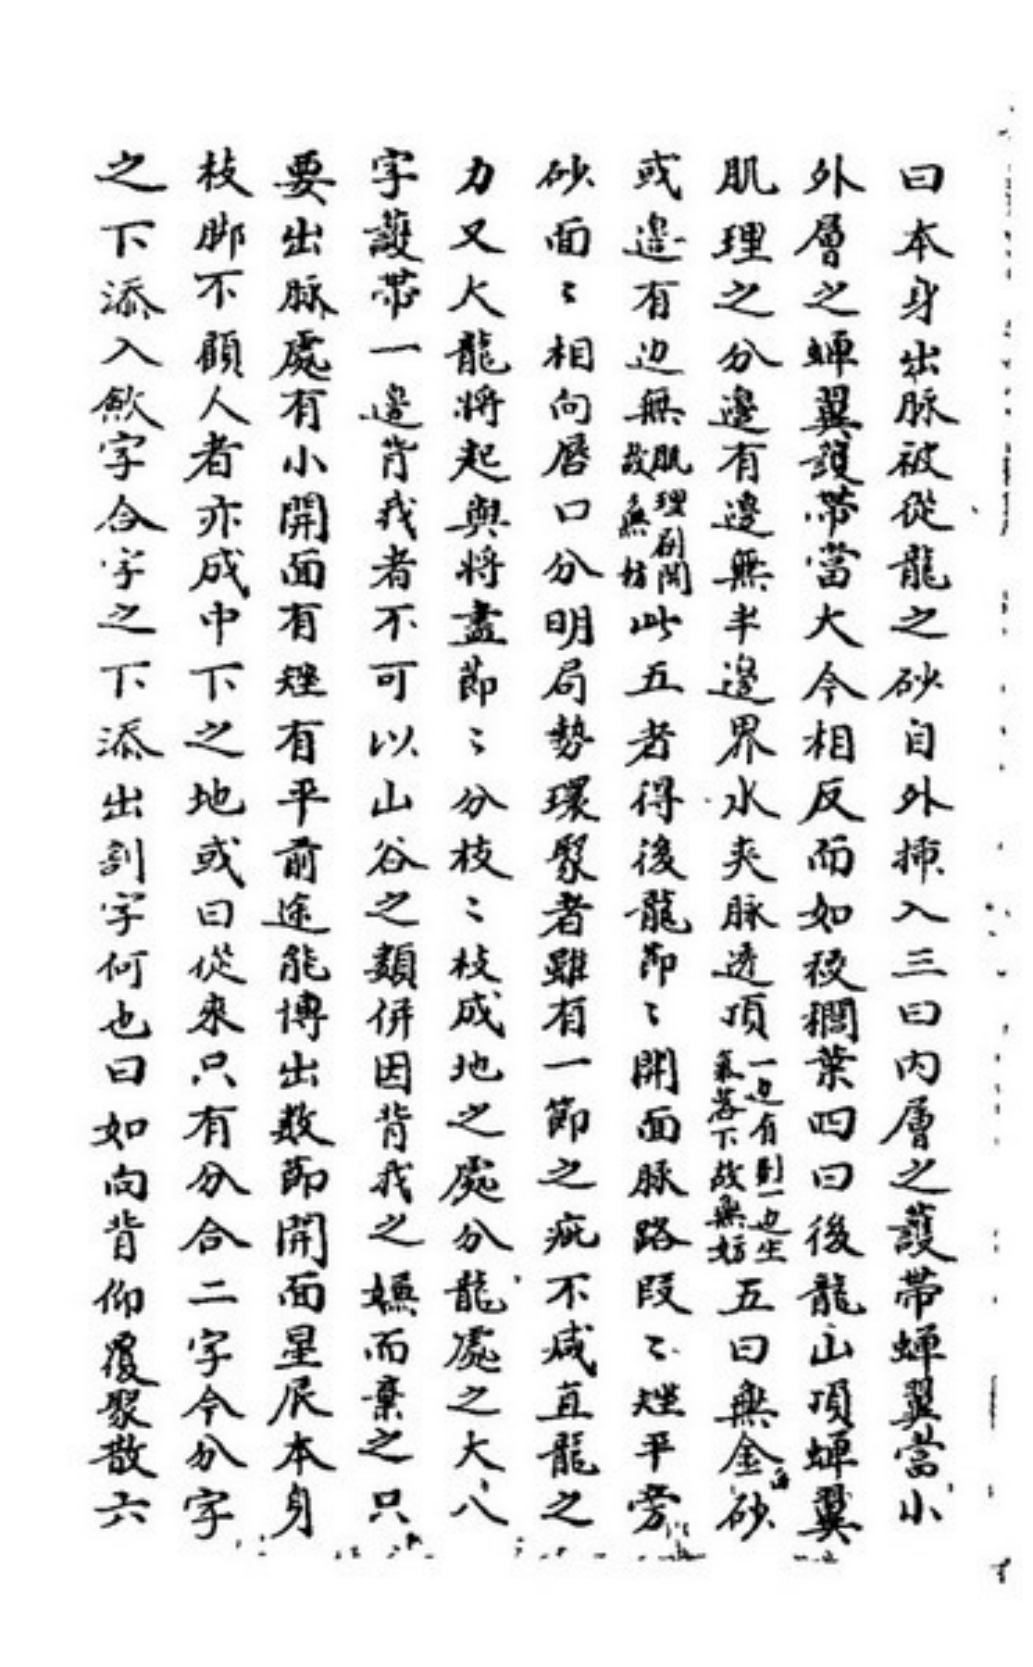 曰本身出脉被從龍之砂自外揷入三曰内層之護帶蟬翼當小
外層之蟬翼護帶當大今相反而如稜櫚葉四曰後龍山頂蟬翼
肌理之分邊有邊無半邊界水夾脉透頂一边有割一边生氣落下故無妨五曰無金魚砂
或邊有边無肌理刷開故無妨此五者得後龍節〻開面脉路段〻矬平旁
砂面〻相向唇口分明局勢環聚者雖有一節之疵不减直龍之
力又大龍將起與將盡節〻分枝〻枝成地之處分龍處之大八
字護帶一邊背我者不可以山谷之類併因背我之嫌而棄之只
要出脉處有小開面有矬有平前途能博出数節開面星辰本身
枝脚不顧人者亦成中下之地或曰從來只有分合二字今分字
之下添入歛字合字之下添出割字何也曰如向背仰覆聚散六